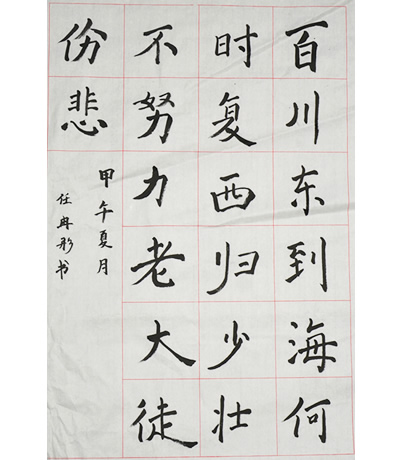 百川东到海何
时复西归少壮
不努力老大徒
伤悲
甲午夏月
任冉彤书